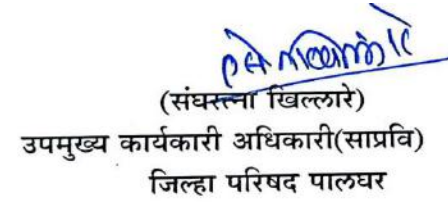 (संघरत्ना खिल्लारे)
उपमुख्य कार्यकारी अधिकारी(साप्रवि)
जिल्हा परिषद पालघर